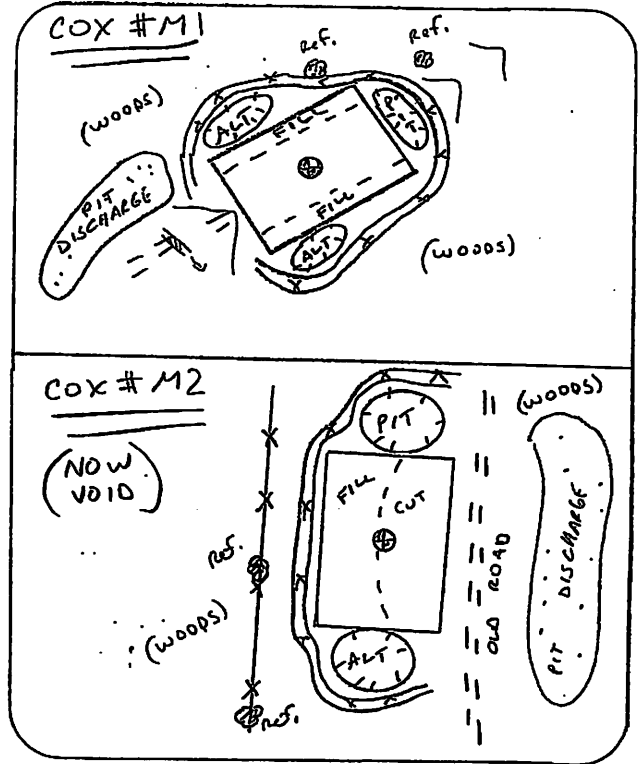 COX # M1
Ref.
Ref.
(WOODS)
ALT.
FILL
PIT
PIT
DISCHARGE
FILL
ALT.
(WOODS)
COX # M2
(NOW
VOID)
PIT
(WOODS)
FILL
CUT
Ref.
OLD ROAD
PIT DISCHARGE
(WOODS)
ALT
Ref.